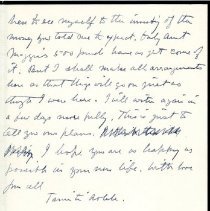 here to see myself to the investing of the
money you told me to expect. Only Aunt
Maggie's 500 pounds have as yet come of
it. But I shall make all arrangements
here so that things will go on just as
tho' I were here. I'll write again in
a few days more fully. This is just to
tell you our plans.
I hope you are as happy as
possible in your new life. With love
from all